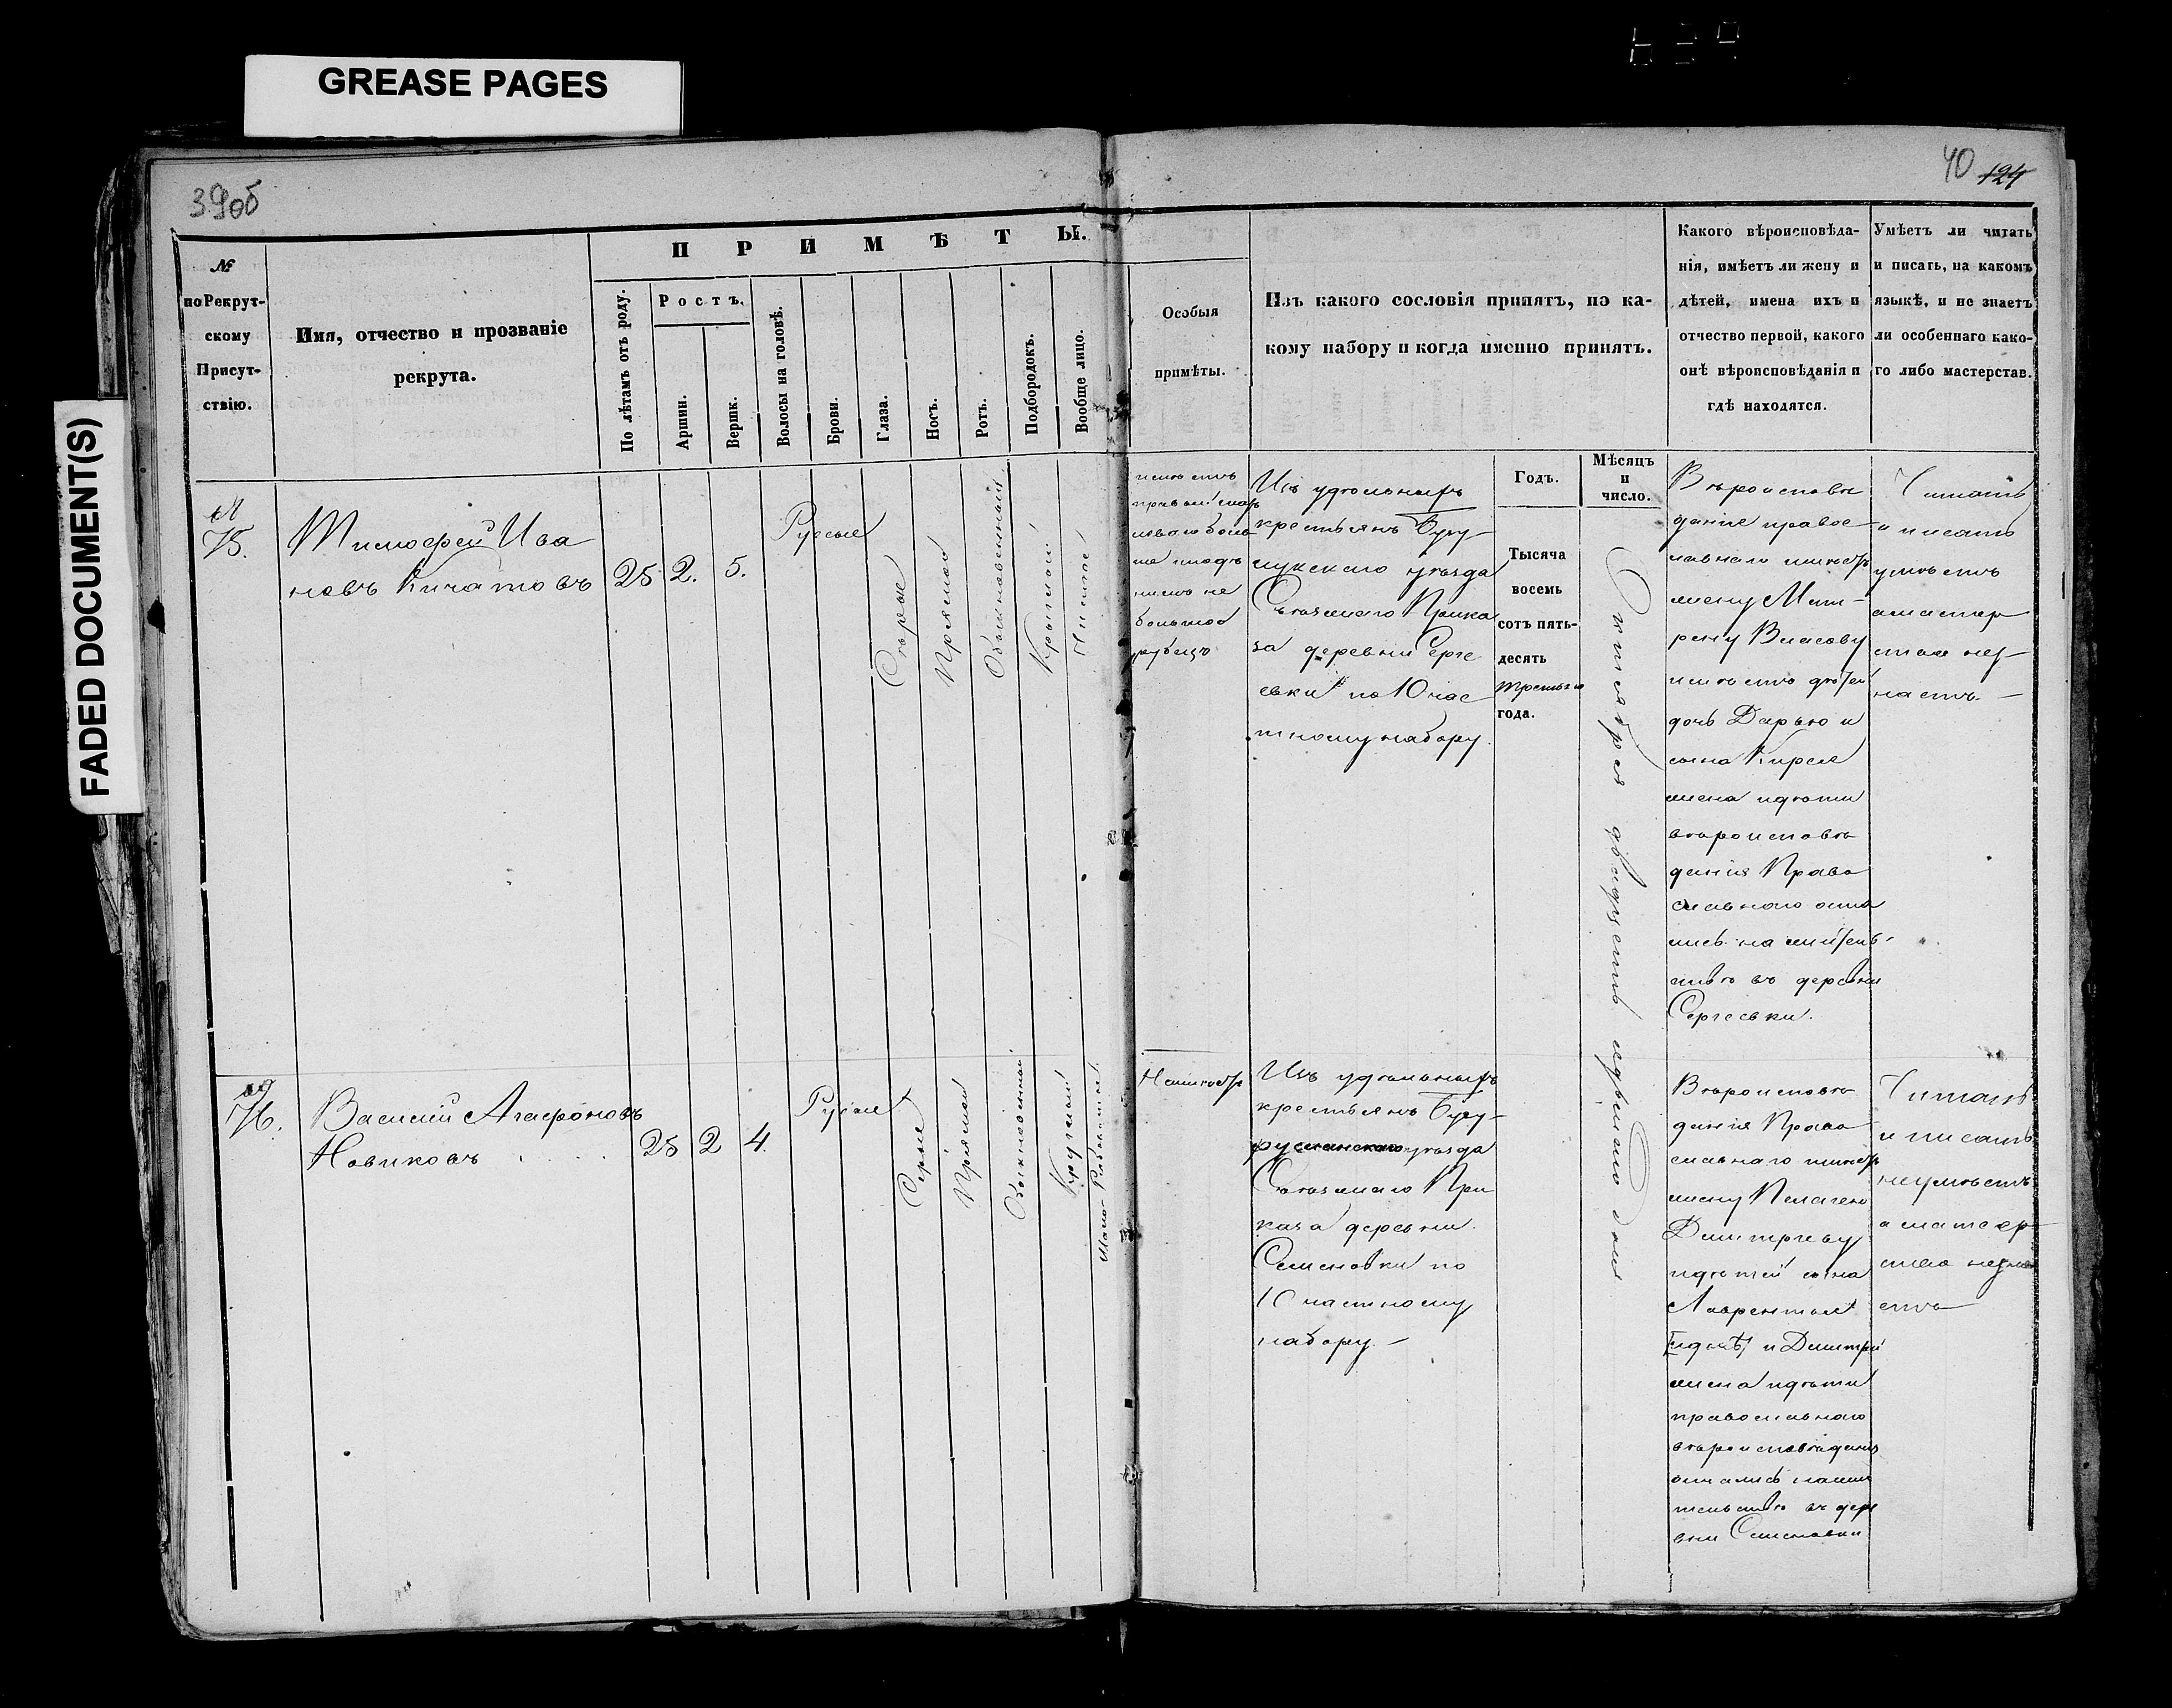 GREASE PAGES
FADED DOCUMENT(S)
39об
40 124
№
по Рекрут-
скому
Присут-
ствію.
Имя, отчество и прозваніе
рекрута.
ПРИМѢТЫ.
По лѣтамъ отъ роду.
Ростъ.
Аршин.
Вершк.
Волосы на головѣ.
Брови.
Глаза.
Носъ.
Ротъ.
Подбородокъ.
Вообще лицо.
Особыя
примѣты.
Изъ какого сословія принятъ, по ка-
кому набору и когда именно принятъ.
Какого вѣроисповѣда-
нія, имѣетъ ли жену и
дѣтей, имена ихъ и
отчество первой, какого
онѣ вѣроисповѣданія и
гдѣ находятся.
Умѣетъ ли читать
и писать, на какомъ
языкѣ, и не знаетъ
ли особеннаго како-
го либо мастерстав.
75.
Тимофей Ива
новъ Кичатовъ
25
2.
5.
Русые
Сѣрые
Прямой
Обыкновенный
Круглый
Чистое
имѣетъ
лѣваго
небольшой
рубецъ
Изъ удѣльныхъ
крестьянъ Бугу-
уѣзда
Съѣзжаго Прика
за деревни Серге
евки по 10 час
тному набору.
Годъ.
Тысяча
восемь
сотъ пять-
десять
третьяго
года.
Мѣсяцъ
и
число.
Октября двадцать перваго дня
Вѣроисповѣ
данія правос
лавнаго имѣетъ
жену Мат-
рену Власову
имѣетъ дѣтей
дочь Дарью и
сына Кирея
жена и дѣти
вѣроисповѣ
данія Право
славнаго оста
лись на житель
ствѣ въ деревни
Сергеевки.
Читать
и писать
умѣетъ
а мастер
ства не з
наетъ.
76.
Василій Агафоновъ
Новиковъ
25
2
4.
Русые
Серые
Прямой
Обыкновенный
Круглый
Мало-Рябоватое
Неимѣетъ
Изъ удѣльныхъ
крестьянъ Бугу-
русланскаго уѣзда
Съѣзжаго При
каза деревни
Семеновки по
10 частному
набору.
Вѣроисповѣ
данія Право
славнаго имѣетъ
жену Пелагею
Дмитріеву
и дѣтей сына
Лаврентья
и Дмитрій
жена и дѣти
православнаго
вѣроисповѣданія
остались на жи
тельствѣ въ дере
вни Семеновки
Читать
и писать
не умѣетъ
а мастер
ства не зна
етъ